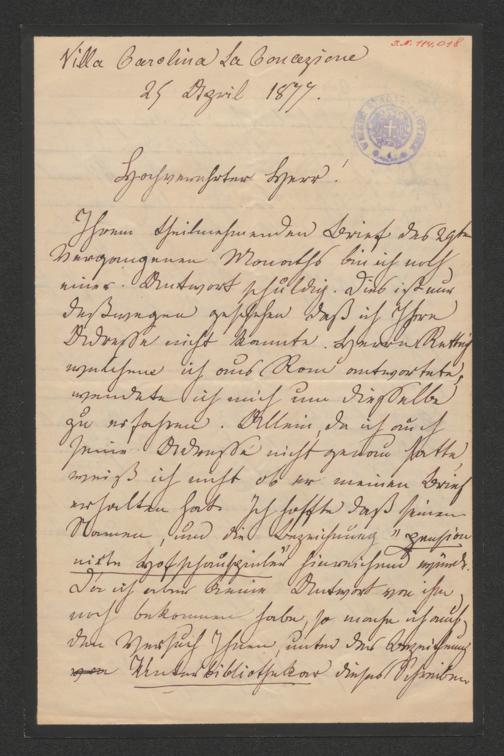 J.N. 114.018
Villa Carolina La Concezione
25 April 1877.
Hochverehrter Herr!
Ihrem theilnehmenden Brief des 29ten
vergangenen Monaths bin ich noch
eine Antwort schuldig. Dies ist nur
deßwegen geschehen daß ich Ihre
Adresse nicht kannte. Herrn Rettig
welchem ich aus Rom antwortete,
wendete ich mich um dieselbe
zu erfahren. Allein, da ich auch
seine Adresse nicht genau hatte
weiß ich nicht ob er meinen Brief
erhalten hat. Ich hoffte daß seinen
Namen, und die Bezeichnung "pensio
nirte Hofschauspieler" hinreichend würde.
Da ich aber keine Antwort von ihm
noch bekommen habe, so mache ich auch
den Versuch Ihnen, unter der Bezeichnung
Unterbibliothekar dieses Schreiben